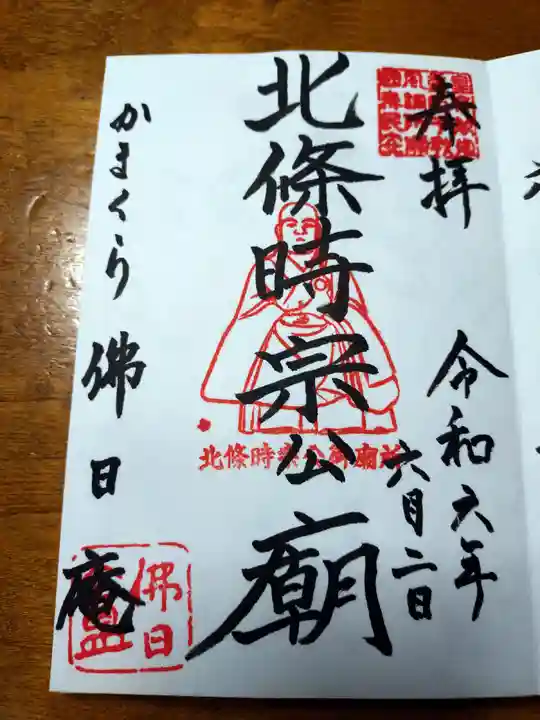 奉拝
令和六年
六月二日
北條時宗公廟
北條時宗公御廟所
かまくら佛日庵
佛日